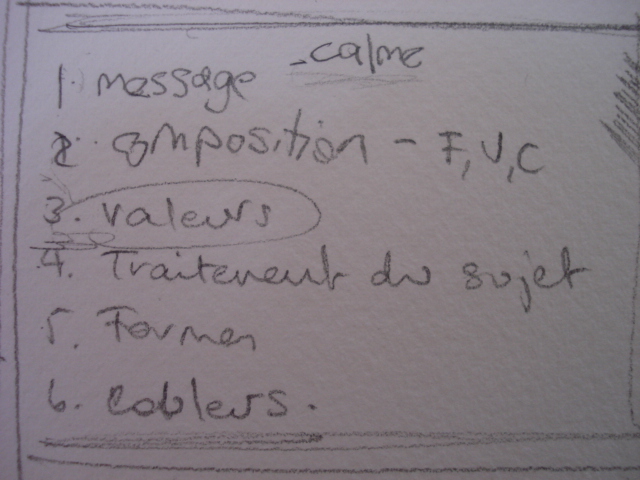 1. message - calme
2. composition - F, V, C
3. valeurs
4. Traitement du sujet
5. Formes
6. couleurs.